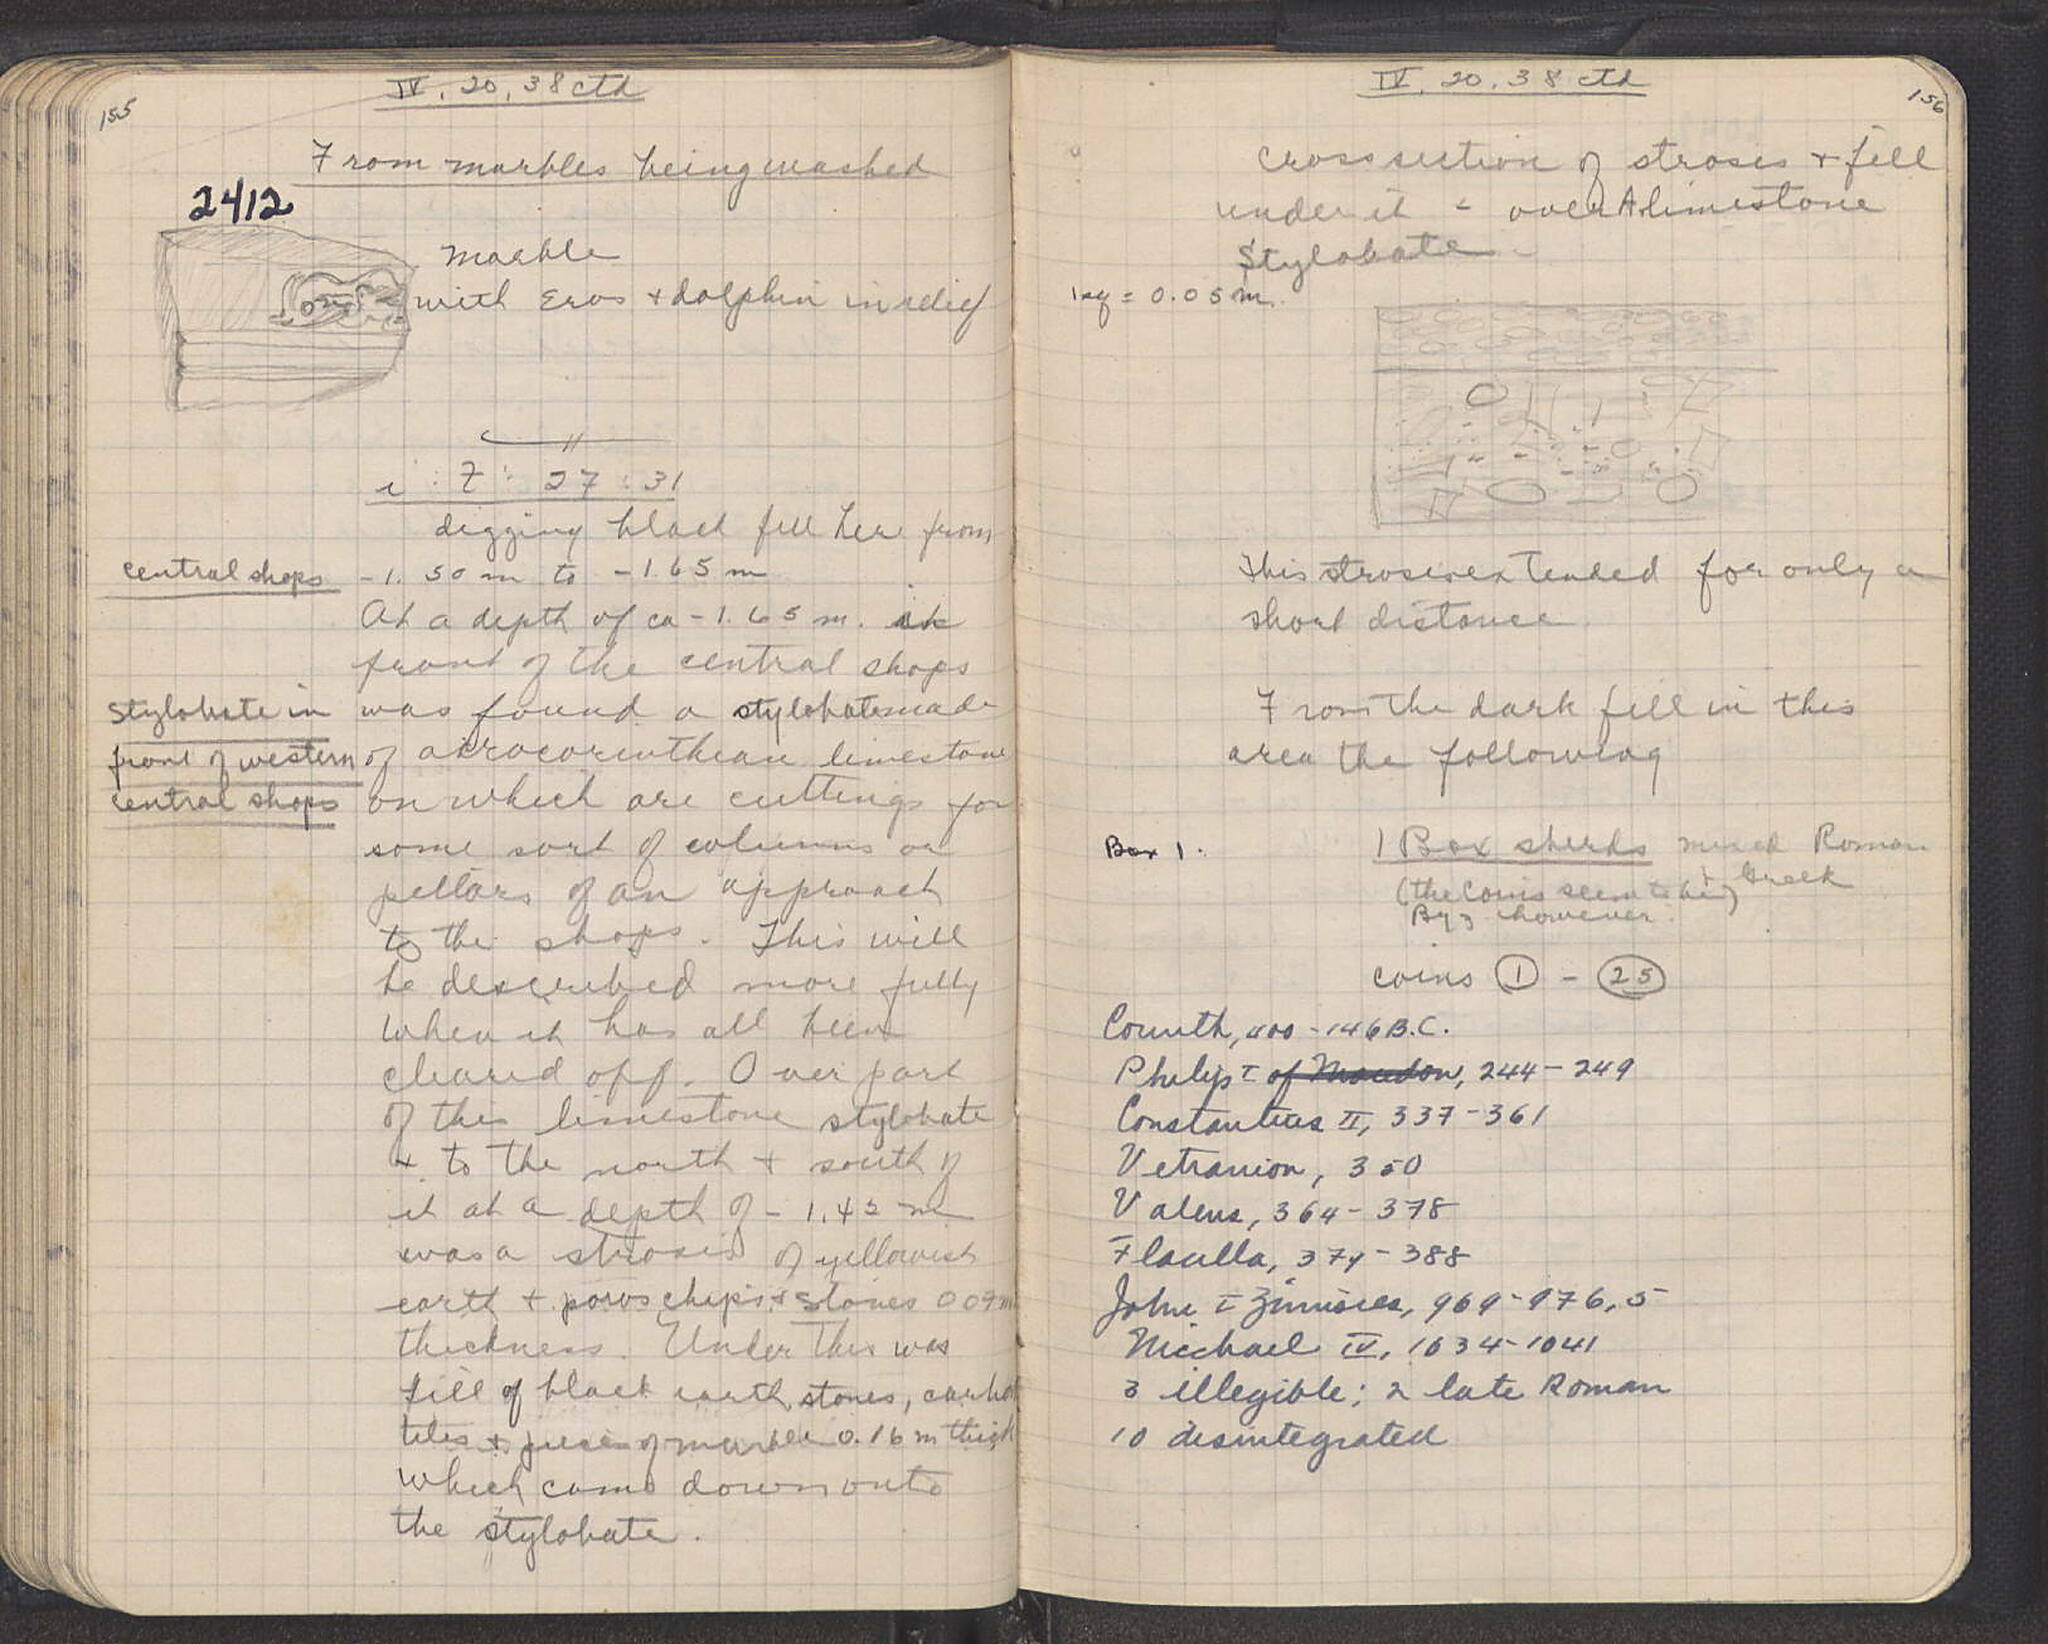 155
IV, 20, 38 ctd
From marbles being washed
2412
Marble
with Eros + dolphin in relief
i : Z : 27 : 31
digging black fill her from
central shops
-1.50 m to -1.65 m
At a depth of ca -1.65 m. in
front of the central shops
Stylobate in
front of western
central shops
was found a stylobate made
of acrocorinthian limestone
on which are cuttings for
some sort of columns or
pillars of an approach
to the shops. This will
be described more fully
when it has all been
cleared off. Over part
of this limestone stylobate
+ to the north + south of
it at a depth of - 1.42 m
was a strosis of yellowish
earth + poros chips + stones 0.09 m
thickness. Under this was
fill of black earth, stones, carbon
tiles + pieces of marble 0.16 m thick
which came down onto
the stylobate.
IV, 20, 38 ctd
156
cross section of strosis + fill
under it - over A. limestone
Stylobate -
1 sq = 0.05 m.
This strosis extended for only a
short distance.
From the dark fill in this
area the following
Box 1.
1 Box sherds mixed Roman
+ Greek
(the coins seem to be)
Byz however.
coins 1 - 25
Corinth, 400-146 B.C.
Philip I of Macedon, 244-249
Constantius II, 337-361
Vetranion, 350
Valens, 364-378
Flacilla, 379-388
John I Zimisces, 969-976, 5
Michael IV, 1034-1041
3 illegible; 2 late Roman
10 disintegrated